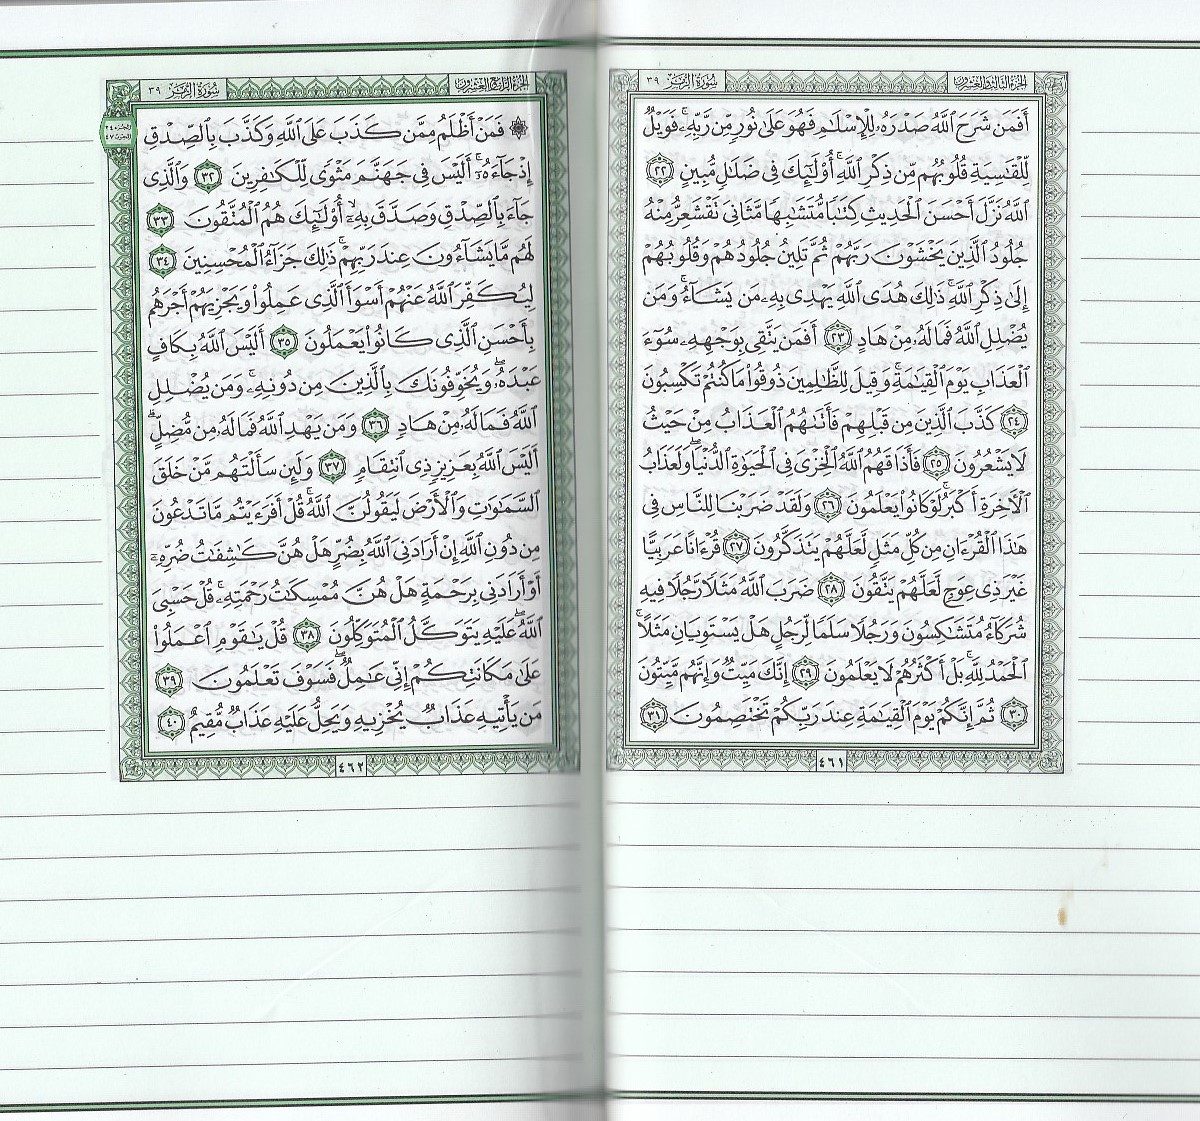 الجزء الثالث والعشرون
سورة الزمر ٣٩
أَفَمَن شَرَحَ ٱللَّهُ صَدْرَهُۥ لِلْإِسْلَٰمِ فَهُوَ عَلَىٰ نُورٍ مِّن رَّبِّهِۦ ۚ فَوَيْلٌ
لِّلْقَٰسِيَةِ قُلُوبُهُم مِّن ذِكْرِ ٱللَّهِ ۚ أُو۟لَٰٓئِكَ فِى ضَلَٰلٍ مُّبِينٍ ٢٢
ٱللَّهُ نَزَّلَ أَحْسَنَ ٱلْحَدِيثِ كِتَٰبًا مُّتَشَٰبِهًا مَّثَانِىَ تَقْشَعِرُّ مِنْهُ
جُلُودُ ٱلَّذِينَ يَخْشَوْنَ رَبَّهُمْ ثُمَّ تَلِينُ جُلُودُهُمْ وَقُلُوبُهُمْ
إِلَىٰ ذِكْرِ ٱللَّهِ ۚ ذَٰلِكَ هُدَى ٱللَّهِ يَهْدِى بِهِۦ مَن يَشَآءُ ۚ وَمَن
يُضْلِلِ ٱللَّهُ فَمَا لَهُۥ مِنْ هَادٍ ٢٣ أَفَمَن يَتَّقِى بِوَجْهِهِۦ سُوٓءَ
ٱلْعَذَابِ يَوْمَ ٱلْقِيَٰمَةِ ۚ وَقِيلَ لِلظَّٰلِمِينَ ذُوقُوا۟ مَا كُنتُمْ تَكْسِبُونَ
٢٤ كَذَّبَ ٱلَّذِينَ مِن قَبْلِهِمْ فَأَتَىٰهُمُ ٱلْعَذَابُ مِنْ حَيْثُ
لَا يَشْعُرُونَ ٢٥ فَأَذَاقَهُمُ ٱللَّهُ ٱلْخِزْىَ فِى ٱلْحَيَوٰةِ ٱلدُّنْيَا ۖ وَلَعَذَابُ
ٱلْءَاخِرَةِ أَكْبَرُ ۚ لَوْ كَانُوا۟ يَعْلَمُونَ ٢٦ وَلَقَدْ ضَرَبْنَا لِلنَّاسِ فِى
هَٰذَا ٱلْقُرْءَانِ مِن كُلِّ مَثَلٍ لَّعَلَّهُمْ يَتَذَكَّرُونَ ٢٧ قُرْءَانًا عَرَبِيًّا
غَيْرَ ذِى عِوَجٍ لَّعَلَّهُمْ يَتَّقُونَ ٢٨ ضَرَبَ ٱللَّهُ مَثَلًا رَّجُلًا فِيهِ
شُرَكَآءُ مُتَشَٰكِسُونَ وَرَجُلًا سَلَمًا لِّرَجُلٍ هَلْ يَسْتَوِيَانِ مَثَلًا ۚ
ٱلْحَمْدُ لِلَّهِ ۚ بَلْ أَكْثَرُهُمْ لَا يَعْلَمُونَ ٢٩ إِنَّكَ مَيِّتٌ وَإِنَّهُم مَّيِّتُونَ
٣٠ ثُمَّ إِنَّكُمْ يَوْمَ ٱلْقِيَٰمَةِ عِندَ رَبِّكُمْ تَخْتَصِمُونَ ٣١
٤٦١
الجزء الرابع والعشرون
سورة الزمر ٣٩
الجزء ٢٤
الحزب ٤٧
۞ فَمَنْ أَظْلَمُ مِمَّن كَذَبَ عَلَى ٱللَّهِ وَكَذَّبَ بِٱلصِّدْقِ
إِذْ جَآءَهُۥٓ ۚ أَلَيْسَ فِى جَهَنَّمَ مَثْوًى لِّلْكَٰفِرِينَ ٣٢ وَٱلَّذِى
جَآءَ بِٱلصِّدْقِ وَصَدَّقَ بِهِۦٓ ۙ أُو۟لَٰٓئِكَ هُمُ ٱلْمُتَّقُونَ ٣٣
لَهُم مَّا يَشَآءُونَ عِندَ رَبِّهِمْ ۚ ذَٰلِكَ جَزَآءُ ٱلْمُحْسِنِينَ ٣٤
لِيُكَفِّرَ ٱللَّهُ عَنْهُمْ أَسْوَأَ ٱلَّذِى عَمِلُوا۟ وَيَجْزِيَهُمْ أَجْرَهُم
بِأَحْسَنِ ٱلَّذِى كَانُوا۟ يَعْمَلُونَ ٣٥ أَلَيْسَ ٱللَّهُ بِكَافٍ
عَبْدَهُۥ ۖ وَيُخَوِّفُونَكَ بِٱلَّذِينَ مِن دُونِهِۦ ۚ وَمَن يُضْلِلِ
ٱللَّهُ فَمَا لَهُۥ مِنْ هَادٍ ٣٦ وَمَن يَهْدِ ٱللَّهُ فَمَا لَهُۥ مِن مُّضِلٍّ ۗ
أَلَيْسَ ٱللَّهُ بِعَزِيزٍ ذِى ٱنتِقَامٍ ٣٧ وَلَئِن سَأَلْتَهُم مَّنْ خَلَقَ
ٱلسَّمَٰوَٰتِ وَٱلْأَرْضَ لَيَقُولُنَّ ٱللَّهُ ۚ قُلْ أَفَرَءَيْتُم مَّا تَدْعُونَ
مِن دُونِ ٱللَّهِ إِنْ أَرَادَنِىَ ٱللَّهُ بِضُرٍّ هَلْ هُنَّ كَٰشِفَٰتُ ضُرِّهِۦٓ
أَوْ أَرَادَنِى بِرَحْمَةٍ هَلْ هُنَّ مُمْسِكَٰتُ رَحْمَتِهِۦ ۚ قُلْ حَسْبِىَ
ٱللَّهُ ۖ عَلَيْهِ يَتَوَكَّلُ ٱلْمُتَوَكِّلُونَ ٣٨ قُلْ يَٰقَوْمِ ٱعْمَلُوا۟
عَلَىٰ مَكَانَتِكُمْ إِنِّى عَٰمِلٌ ۖ فَسَوْفَ تَعْلَمُونَ ٣٩
مَن يَأْتِيهِ عَذَابٌ يُخْزِيهِ وَيَحِلُّ عَلَيْهِ عَذَابٌ مُّقِيمٌ ٤٠
٤٦٢